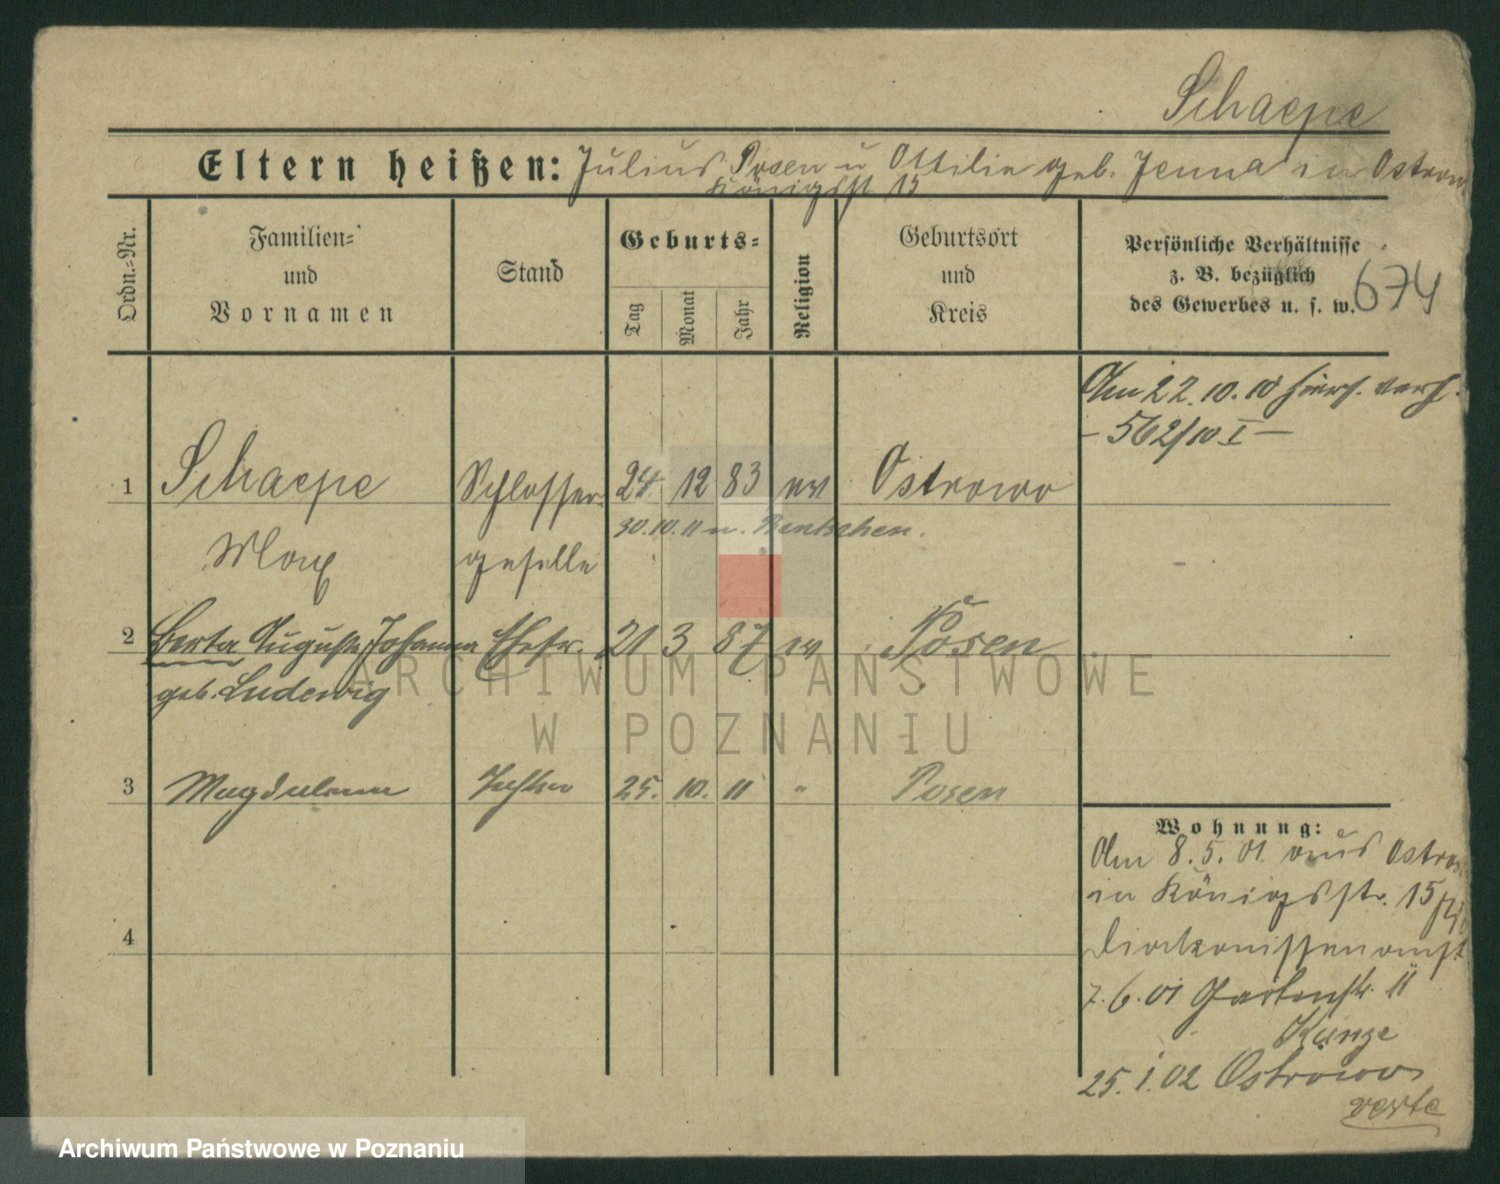 Schaepe
Eltern heißen: Julius Posen u Ottilie geb. Jenna in Ostrow
Königsst 15
Ordn.-Nr.
Familien-
und
Vornamen
Stand
Geburts-
Tag
Monat
Jahr
Religion
Geburtsort
und
Kreis
Persönliche Verhältnisse
z. B. bezüglich
des Gewerbes u. s. w.
674
Am 22.10.10 hiers. verh.
- 562/10 I -
1 Schaepe Schlosser 24 12 83 ev Ostrowo
30.10.11 n. Bentschen.
Max geselle
2 Berta Auguste Johanna Ehefr. 21 3 87 ev Posen
geb. Ludewig
3 Magdalena Tochter 25. 10. 11 " Posen
4
Wohnung:
Am 8.5.01 aus Ostrow
in Königsstr. 15
Diakonissenanst
7.6.01 Gartenstr. 11
Kunze
25.1.02 Ostrowo
verte
ARCHIWUM PAŃSTWOWE
W POZNANIU
Archiwum Państwowe w Poznaniu